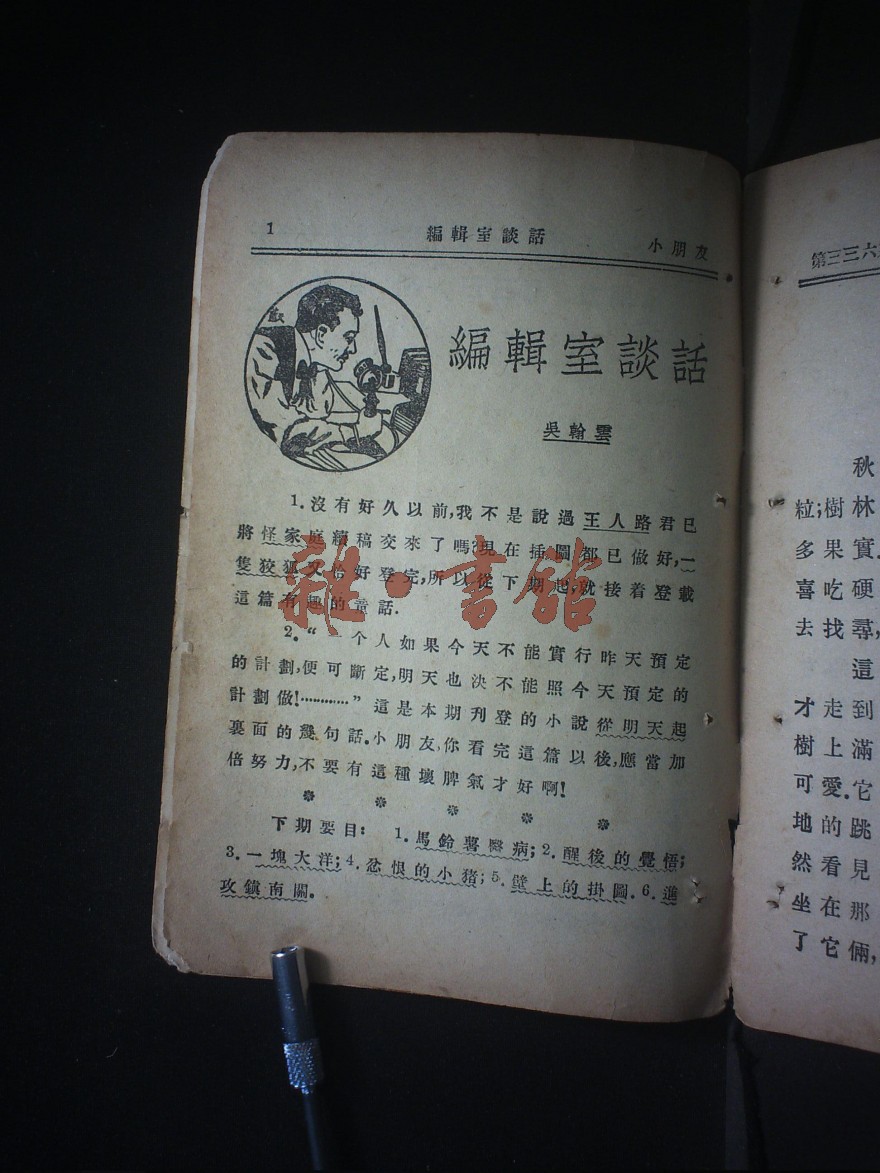 1 編輯室談話 小朋友
編輯室談話
吳翰雲
1.沒有好久以前,我不是說過王人路君已
將怪家庭續稿交來了嗎?現在插圖都已做好,一
隻狡狐又恰好登完,所以從下期起,就接着登載
這篇有趣的童話.
2.“一个人如果今天不能實行昨天預定
的計劃,便可斷定,明天也決不能照今天預定的
計劃做!…………”這是本期刊登的小說從明天起
裏面的幾句話.小朋友,你看完這篇以後,應當加
倍努力,不要有這種壞脾氣才好啊!
下期要目: 1.馬鈴薯醫病;2.醒後的覺悟;
3.一塊大洋;4.忿恨的小豬;5.壁上的掛圖.6.進
攻鎮南關.
雜·書館
第三三六
秋
粒;樹林
多果實.
喜吃硬
去找尋,
這
才走到
樹上滿
可愛.它
地的跳
然看見
坐在那
了它倆,